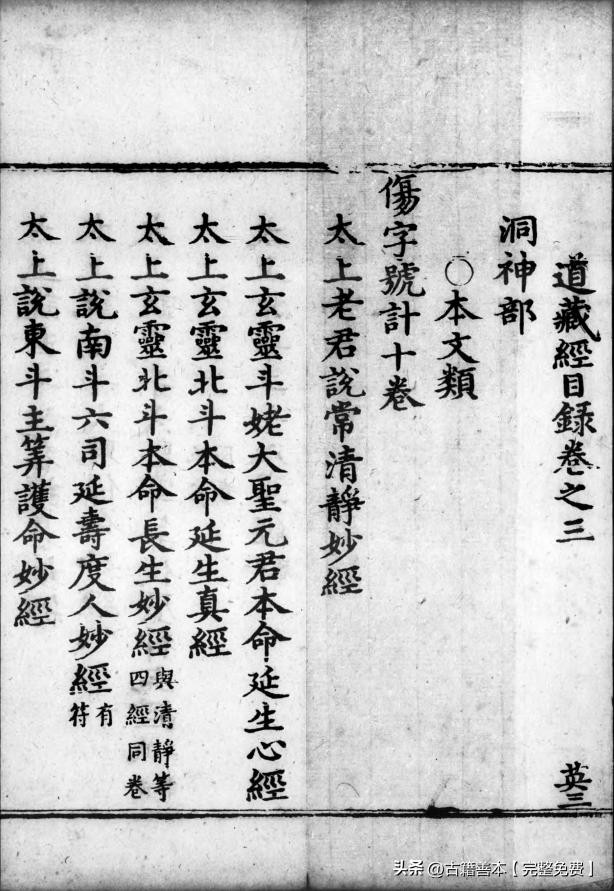 道藏經目録卷之三
英三
洞神部
○本文類
傷字號計十卷
太上老君說常清靜妙經
太上玄靈斗姥大聖元君本命延生心經
太上玄靈北斗本命延生真經
太上玄靈北斗本命長生妙經 與清靜等
四經同卷
太上說南斗六司延壽度人妙經 有
符
太上說東斗主筭護命妙經
头条 @古籍善本【完整免费】